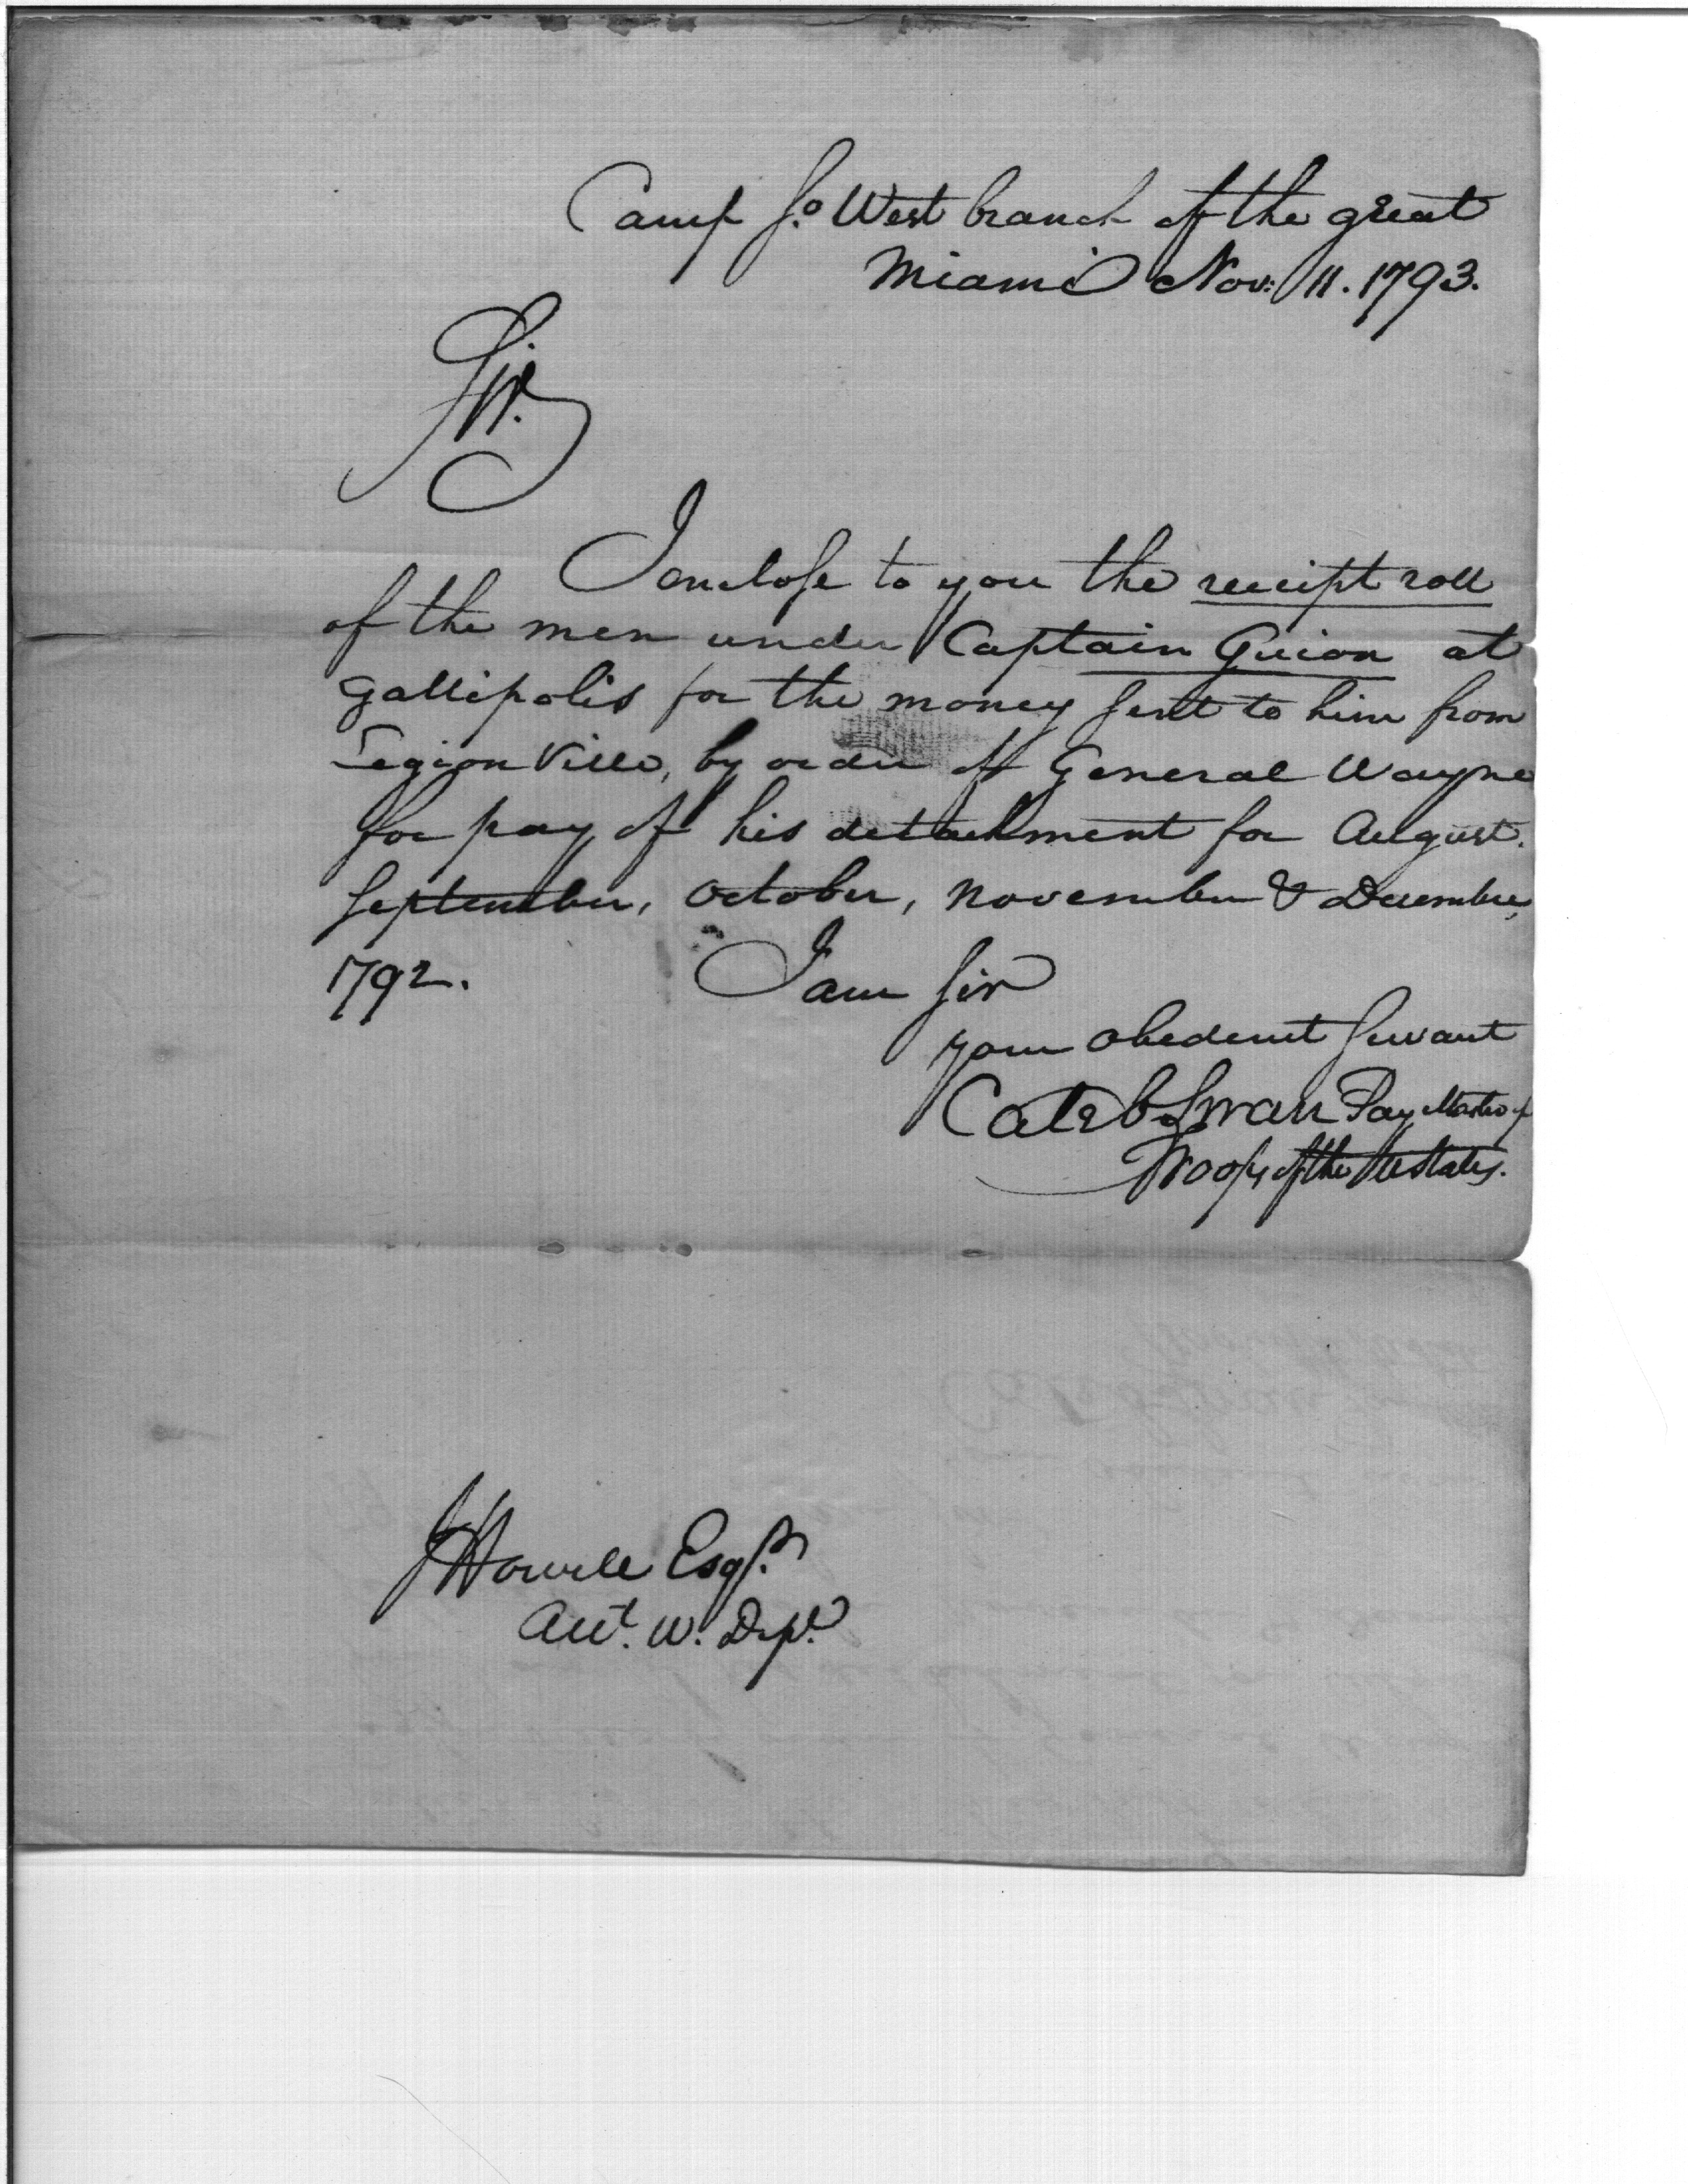 Camp So. West branch of the great
Miami Nov: 11. 1793.
Sir.
I enclose to you the receipt roll
of the men under Captain Guion at
Gallipolis for the money sent to him from
Legion Ville, by order of General Wayne
for pay of his detachment for August.
September, October, November & December,
1792. I am Sir
your obedient servant
Caleb Swan Pay Master of
Troops of the U States.
J Howell Esqr.
Acct. W. Dept.